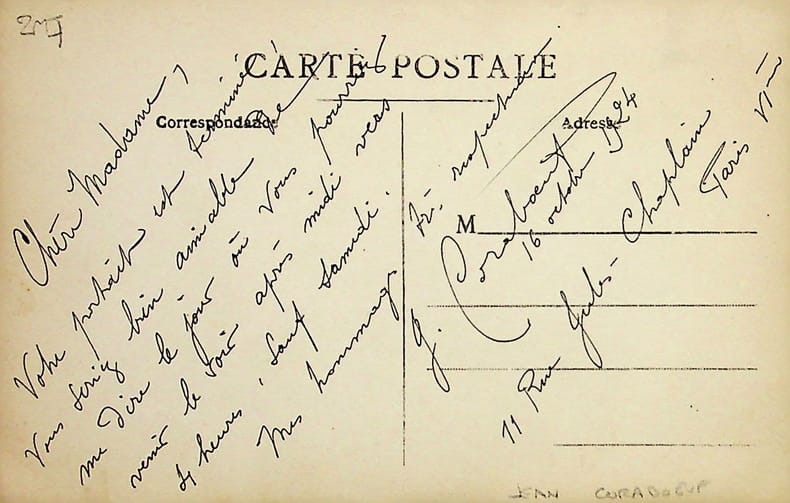 CARTE POSTALE
Correspondance
Adresse
M
Chère Madame,
Votre portrait est terminé
Vous seriez bien aimable de
me dire le jour où vous pourrez
venir le voir après midi vers
4 heures, sauf samedi.
Mes hommages
Très respectueux
J. Coraboeuf
16 octobre 1924
11 Rue Jules-Chaplain
Paris VIème
JEAN CORABOEUF